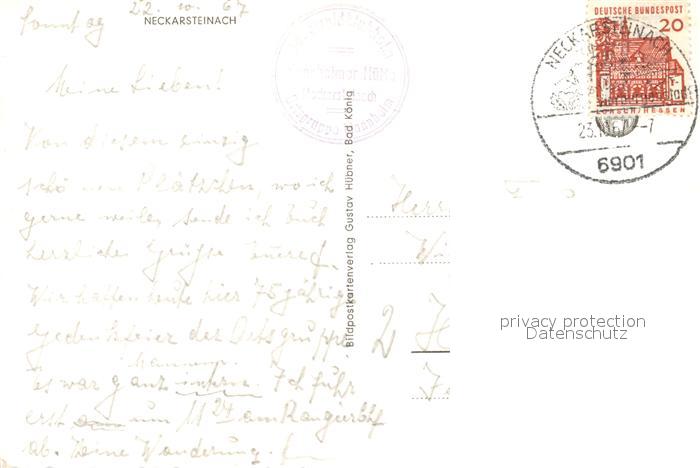 Sonntag 22. 10. 67
NECKARSTEINACH
Meine Lieben!
Von diesem einzig
schönen Plätzchen, wo ich
gerne weile, sende ich Euch
herzliche Grüße zuerst.
Wir hatten heute hier 75jährige
Gedenkfeier der Ortsgruppe
Mannh.
es war ganz intern. Ich fuhr
erst um 11 24 am Rangierbhf
ab. Keine Wanderung.
Bildpostkartenverlag Gustav Hübner, Bad König
Neckarsteinach
Ortsgruppe Mannheim
DEUTSCHE BUNDESPOST
20
LORSCH/HESSEN
NECKARSTEINACH
Vierburgenstadt
23.10.67-7
6901
Herr
2
privacy protection
Datenschutz